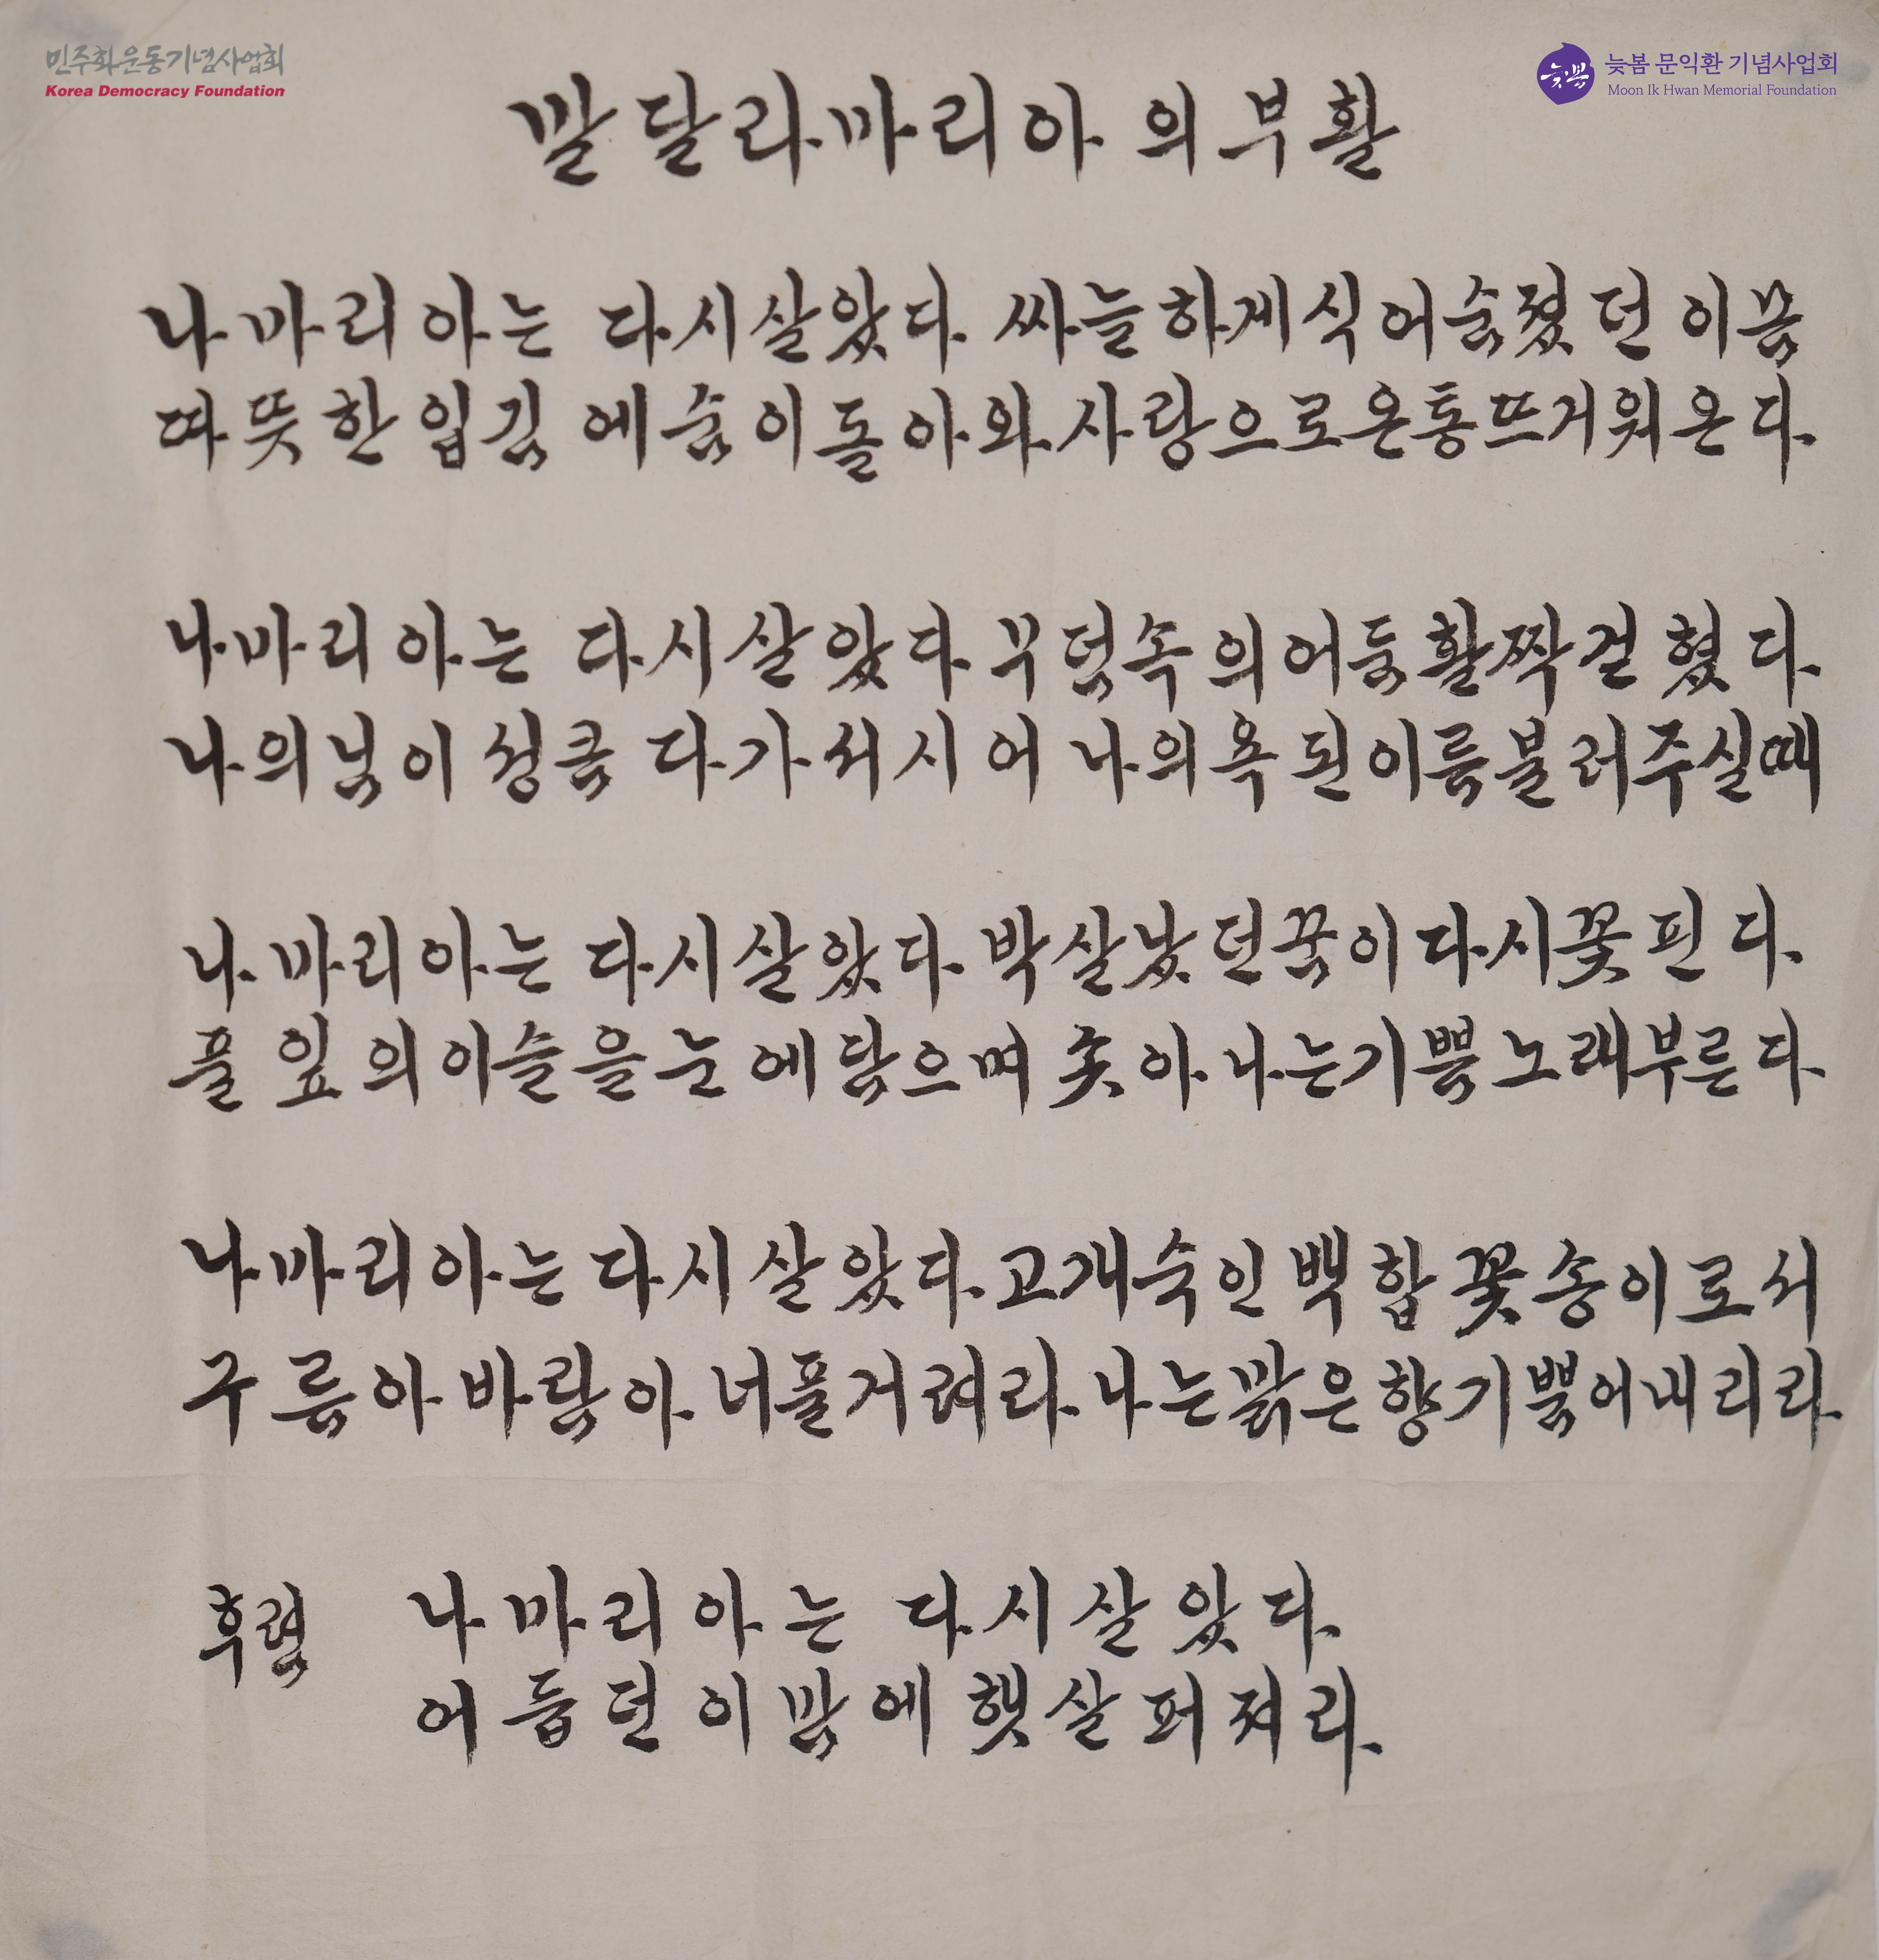 민주화운동기념사업회
Korea Democracy Foundation
늦봄 문익환 기념사업회
Moon Ik Hwan Memorial Foundation
늦봄
말달라마리아의부활
나마리아는 다시살았다 싸늘하게식어숨졌던 이몸
따뜻한입김에숨이돌아와사랑으로온통뜨거워온다
나마리아는 다시살았다 무덤속의어둠활짝걷혔다
나의님이성큼 다가서시어 나의욕된이름불러주실때
나마리아는 다시살았다 박살났던꿈이다시꽃핀다
풀잎의이슬을눈에담으며 솟아나는기쁨노래부른다
나마리아는다시살았다 고개숙인백합꽃송이로서
구름아바람아 너풀거려라 나는맑은향기뿜어내리라
후렴 나마리아는 다시살았다
어둡던이밤에 햇살퍼져라